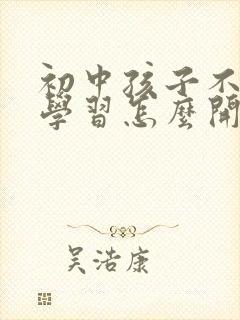 初中孩子不
學習怎麼開
吴浩康